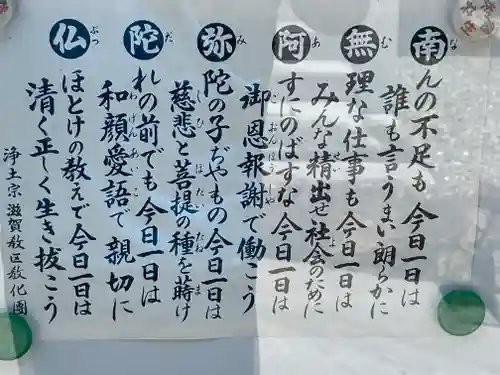 南んの不足も今日一日は
誰も言うまい朗らかに
無理な仕事も今日一日は
みんな精出せ社会のために
阿すにのばすな今日一日は
御恩報謝で働こう
弥陀の子ぢやもの今日一日は
慈悲と菩提の種を蒔け
陀れの前でも今日一日は
和顔愛語で親切に
仏ほとけの教えで今日一日は
清く正しく生き抜こう
浄土宗滋賀教区教化団